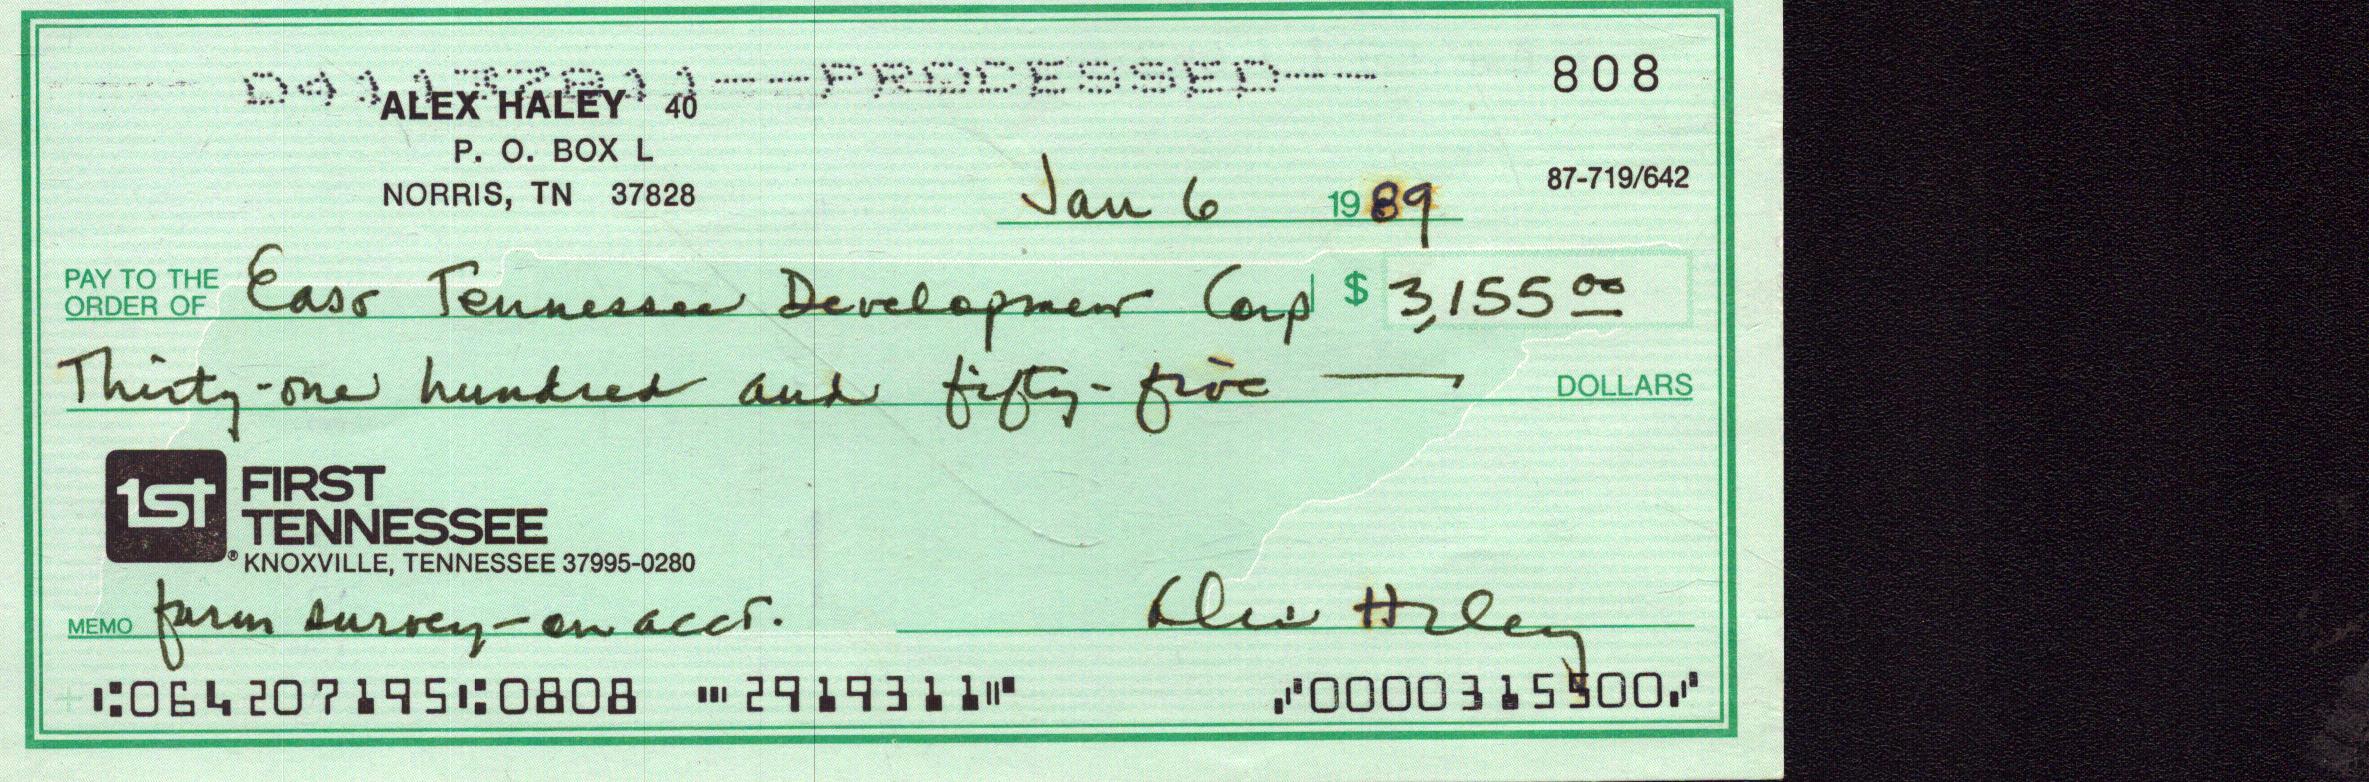 PROCESSED
808
ALEX HALEY 40
P. O. BOX L
NORRIS, TN 37828
87-719/642
Jan 6 1989
PAY TO THE ORDER OF East Tennessee Development Corp $ 3,155 00
Thirty-one hundred and fifty-five DOLLARS
1st FIRST
TENNESSEE
® KNOXVILLE, TENNESSEE 37995-0280
MEMO farm survey - on acct. Alex Haley
⑆064207195⑆0808 ⑈2919311⑈ ⑇0000315500⑇